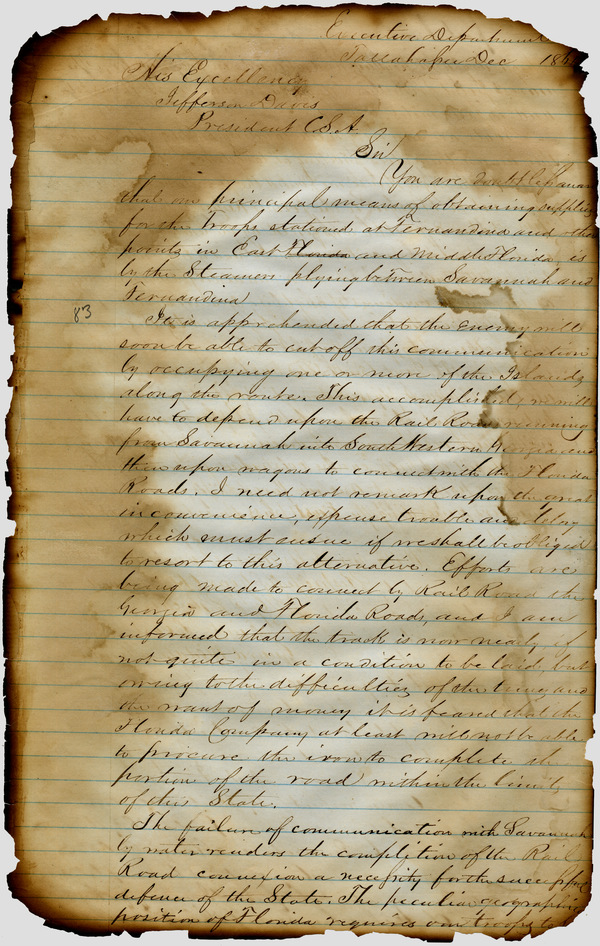 Executive Department
Tallahassee Dec 186
His Excellency
Jefferson Davis
President C.S.A.
Sir
You are doubtless aware
that our principal means of obtaining supplies
for the Troops stationed at Fernandina and other
points in East Florida and Middle Florida, is
by the Steamers plying between Savannah and
Fernandina
83
It is apprehended that the Enemy will
soon be able to cut off this communication
by occupying one or more of the Islands
along the route. This accomplished, we will
have to depend upon the Rail Road running
from Savannah into South Western Georgia and
then upon wagons to connect with the Florida
Roads. I need not remark upon the great
inconvenience, expense trouble and delay
which must ensue if we shall be obliged
to resort to this alternative. Efforts are
being made to connect by Rail Road the
Georgia and Florida Roads, and I am
informed that the track is now nearly if
not quite in a condition to be laid, but
owing to the difficulties of the times and
the want of money it is feared that the
Florida Company at least will not be able
to procure the iron to complete the
portion of the road within the limits
of this State.
The failure of communication with Savannah
by water renders the completion of the Rail
Road connexion a necessity for the successful
defence of the State. The peculiar geographic
position of Florida requires our troops to